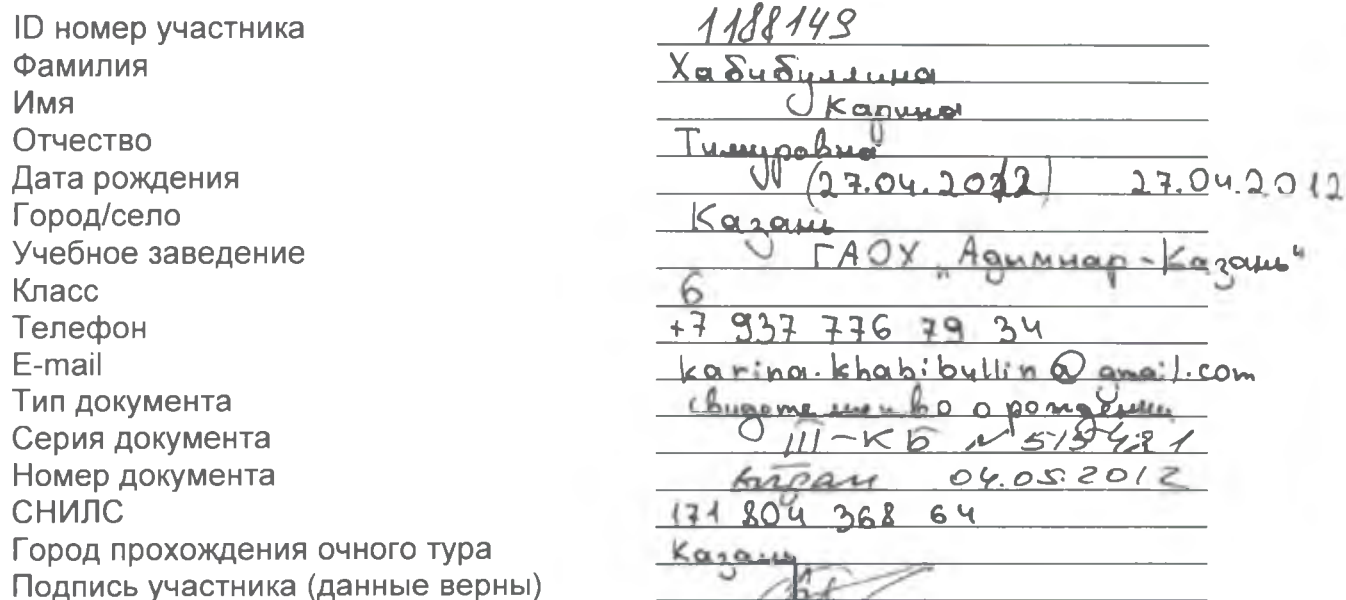 ID номер участника 1188149
Фамилия Хабибуллина
Имя Карина
Отчество Тимуровна
Дата рождения (27.04.2012) 27.04.2012
Город/село Казань
Учебное заведение ГАОУ „Адымнар - Казань“
Класс 6
Телефон +7 937 776 79 34
E-mail karina.khabibullin@gmail.com
Тип документа свидетельство о рождении
Серия документа III - КБ №
Номер документа выдан 04.05.2012
СНИЛС 171 804 368 64
Город прохождения очного тура Казань
Подпись участника (данные верны)